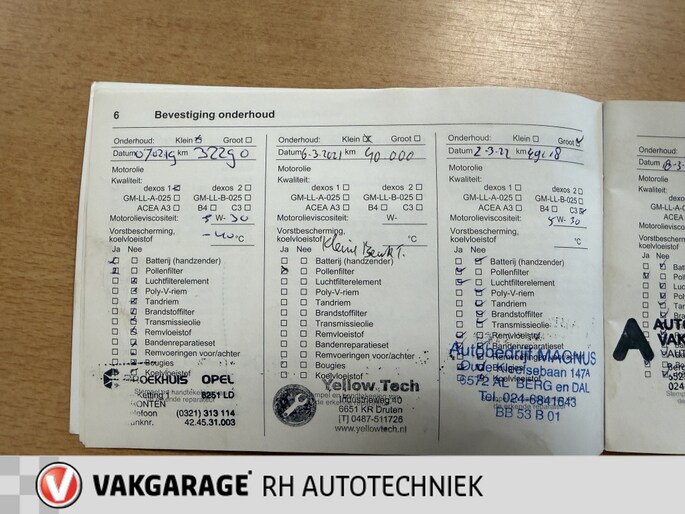 6 Bevestiging onderhoud
Onderhoud: Klein Groot
Datum 070219 km 32290
Motorolie
Kwaliteit:
dexos 1 dexos 2
GM-LL-A-025 GM-LL-B-025
ACEA A3 B4 C3
Motorolieviscositeit: 5 W- 30
Vorstbescherming,
koelvloeistof -40 °C
Ja Nee
Batterij (handzender)
Pollenfilter
Luchtfilterelement
Poly-V-riem
Tandriem
Brandstoffilter
Transmissieolie
Remvloeistof
Bandenreparatieset
Remvoeringen voor/achter
Bougies
Koelvloeistof
BROEKHUIS OPEL
8251 LD
(0321) 313 114
42.45.31.003
Onderhoud: Klein Groot
Datum 6-3-2021 km 40.000
Motorolie
Kwaliteit:
dexos 1 dexos 2
GM-LL-A-025 GM-LL-B-025
ACEA A3 B4 C3
Motorolieviscositeit: W-
Vorstbescherming,
koelvloeistof °C
Klein Beurt
Ja Nee
Batterij (handzender)
Pollenfilter
Luchtfilterelement
Poly-V-riem
Tandriem
Brandstoffilter
Transmissieolie
Remvloeistof
Bandenreparatieset
Remvoeringen voor/achter
Bougies
Koelvloeistof
Yellow Tech
Industrieweg 40
6651 KR Druten
[T] 0487-511726
www.yellowtech.nl
Onderhoud: Klein Groot
Datum 2-3-22 km
Motorolie
Kwaliteit:
dexos 1 dexos 2
GM-LL-A-025 GM-LL-B-025
ACEA A3 B4 C3
Motorolieviscositeit: 5 W- 30
Vorstbescherming,
koelvloeistof °C
Ja Nee
Batterij (handzender)
Pollenfilter
Luchtfilterelement
Poly-V-riem
Tandriem
Brandstoffilter
Transmissieolie
Remvloeistof
Bandenreparatieset
Autobedrijf MAGNUS
Oude Kleefsebaan 147A
6572 AL BERG en DAL
Tel. 024-6841643
BB 53 B 01
Onderhoud:
Datum
Motorolie
Kwaliteit:
GM-LL-A
ACE
Motorolievi
Vorstbesch
koelvloeisto
Ja Nee
AUTO
VAK
VAKGARAGE RH AUTOTECHNIEK